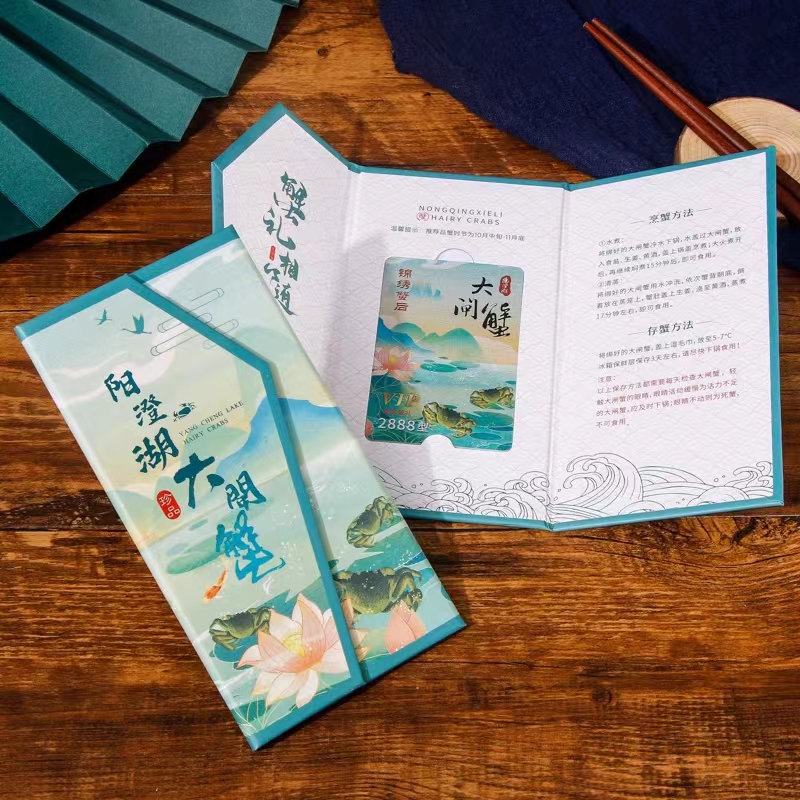 阳澄湖
YANG CHENG LAKE
HAIRY CRABS
珍品
大閘蟹
蟹礼相随
NONGQINGXIELI
HAIRY CRABS
温馨提示：推荐品蟹时节为10月中旬-11月底
锦绣
大闸蟹
VIP
2888型
烹蟹方法
①水煮：
将绑好的大闸蟹冷水下锅，水盖过大闸蟹，放
入食盐、生姜、黄酒，盖上锅盖烹煮；大火煮开
后，再继续焖煮15分钟后，即可食用。
②清蒸：
将绑好的大闸蟹用水冲洗，依次蟹背朝底，侧
着放在蒸笼上，蟹肚盖上生姜，浇至黄酒，蒸煮
17分钟左右，即可食用。
存蟹方法
将绑好的大闸蟹，盖上湿毛巾，放至5-7℃
冰箱保鲜层保存3天左右，请尽快下锅食用！
注意：
以上保存方法都需要每天检查大闸蟹，轻
触大闸蟹的眼睛，眼睛活动缓慢为活力不足
的大闸蟹，应及时下锅；眼睛不动则为死蟹，
不可食用。